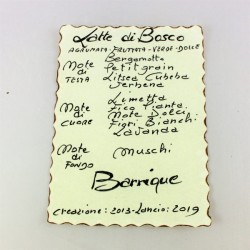 Latte di Bosco
AGRUMATA-FRUTTATA-VERDE-DOLCE
Bergamotto
Note di TESTA
Petitgrain
Litsea Cubeba
Verbena
Limetta
Note di CUORE
Fico Pianta
Note Dolci
Fiori Bianchi
Lavanda
Note di FONDO
Muschi
Barrique
Creazione: 2013-Lancio: 2019